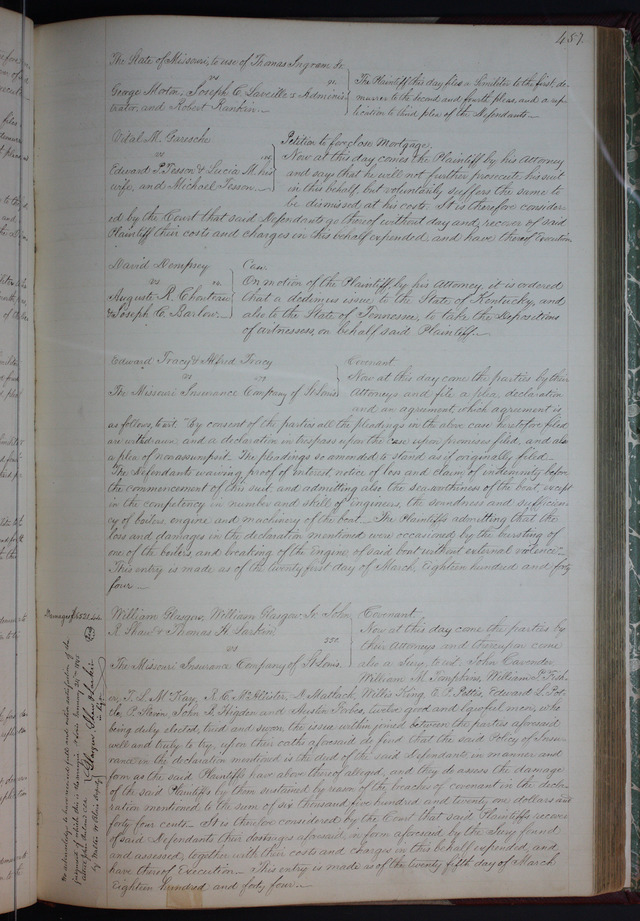 457.
The State of Missouri, to use of Thomas Ingram &c
vs 91.
George Morton, Joseph C. Laveille's Adminis-
trator, and Robert Rankin.
The Plaintiff this day files a Similiter to the first, de-
murrer to the second and fourth pleas, and a rep-
lication to third plea of the Defendants
Vital M. Garesche
vs
Edward P. Tesson & Lucia M. his
wife, and Michael Tesson.
Petition to foreclose Mortgage
Now at this day comes the Plaintiff by his Attorney
and says that he will not further prosecute his suit
in this behalf, but voluntarily suffers the same to
be dismissed at his costs. It is therefore consider-
ed by the Court that said Defendants go thereof without day and recover of said
Plaintiff their costs and charges in this behalf expended and have thereof Execution
David Dempsey
vs
Auguste R. Chouteau
& Joseph C. Barlow.
Case.
On motion of the Plaintiff, by his Attorney, it is ordered
that a dedimus issue to the State of Kentucky, and
also to the State of Tennessee, to take the depositions
of witnesses, on behalf said Plaintiff.
Edward Tracy & Alfred Tracy
vs
The Missouri Insurance Company of St Louis
Covenant
Now at this day came the parties by their
Attorneys and file a plea declaration
and an agreement which agreement is
as follows, to wit. "By consent of the parties all the pleadings in the above case heretofore filed
are withdrawn and a declaration in trespass upon the case upon promises filed, and also
a plea of non assumpsit. The pleadings so amended to stand as if originally filed
The Defendants waiving proof of interest, notice of loss and claim of indemnity before
the commencement of this suit, and admitting also the seaworthiness of the boat, except
in the competency in number and skill of Engineers, the soundness and sufficien-
cy of boilers, engine and machinery of the boat. The Plaintiffs admitting that the
loss and damages in the declaration mentioned were occasioned by the bursting of
one of the boilers and breaking of the Engine of said boat without external violence."
This entry is made as of the twenty first day of March Eighteen hundred and forty
four
Damages $6521.44
William Glasgow, William Glasgow Jr. John
R. Shaw & Thomas H. Larkin
vs 350.
The Missouri Insurance Company of St Louis.
Covenant,
Now at this day come the parties by
their Attorneys and thereupon come
also a Jury, to wit. John Cavender
William M. Tompkins, William P. Fish-
er, F. L. McKay, R. C. McAllister, D. Mattock, Willis King, E. C. Pettis, Edward L. 
P. Slevin, John B. Higdon and Austin Forbes, twelve good and lawful men, who
being duly elected, tried and sworn the issue within joined between the parties aforesaid
well and truly to try, upon their oaths aforesaid do find that the said Policy of Insu-
rance in the declaration mentioned is the deed of the said Defendants in manner and
form as the said Plaintiffs have above thereof alleged, and they do assess the damage
of the said Plaintiffs by them sustained by reason of the breaches of covenant in the decla-
ration mentioned, to the sum of six thousand five hundred and twenty one dollars and
forty four cents. It is therefore considered by the Court that said Plaintiffs recover
of said Defendants their damages aforesaid, in form aforesaid by the Jury found
and assessed, together with their costs and charges in this behalf expended, and
have thereof Execution. This entry is made as of the twenty fifth day of March
Eighteen hundred and forty four.
We acknowledge to have received full and entire satisfaction of the
judgment of which this is the margin
Glasgow, Shaw & Larkin